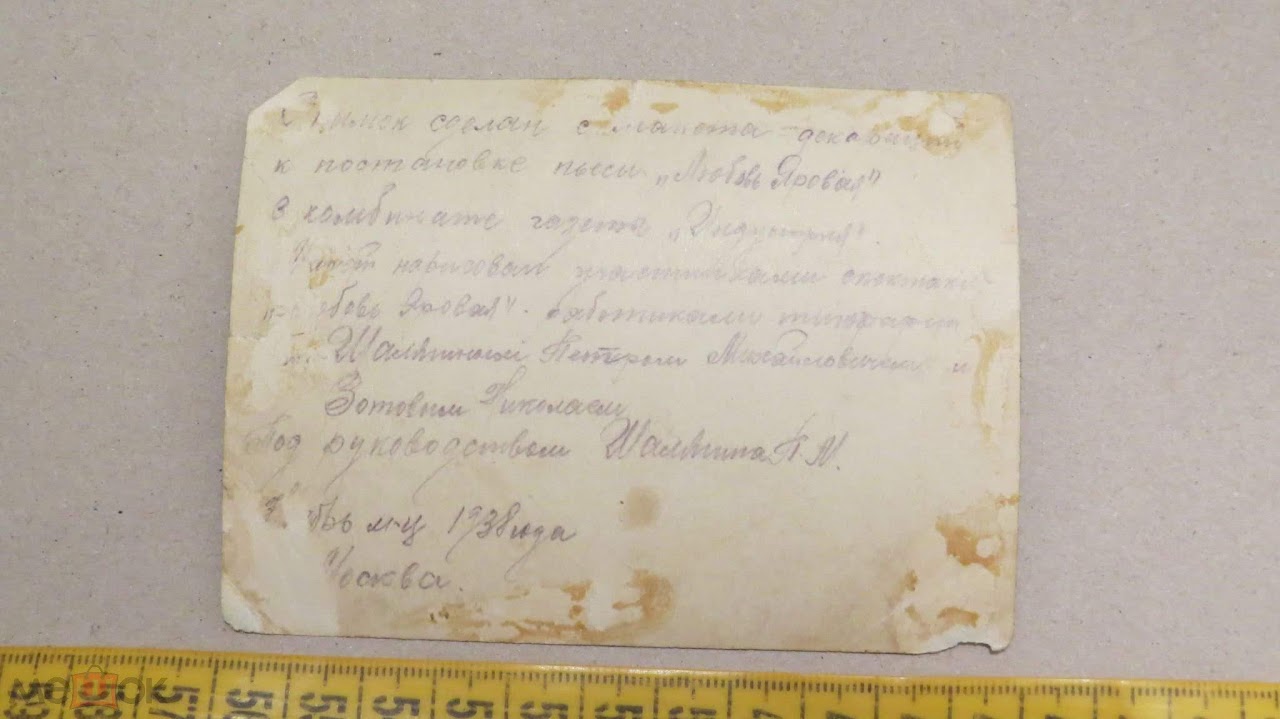 Снимок сделан с макета декораций
к постановке пьесы „Любовь Яровая"
в комбинате газеты „Индустрия".
нарисован участниками спектакля
„Любовь Яровая". работниками типографии
т.т. Шаляпиным Петром Михайловичем и
Зотовым Николаем
Под руководством Шаляпина П. М.
м-ц 1938 года
Москва.
57 56 55